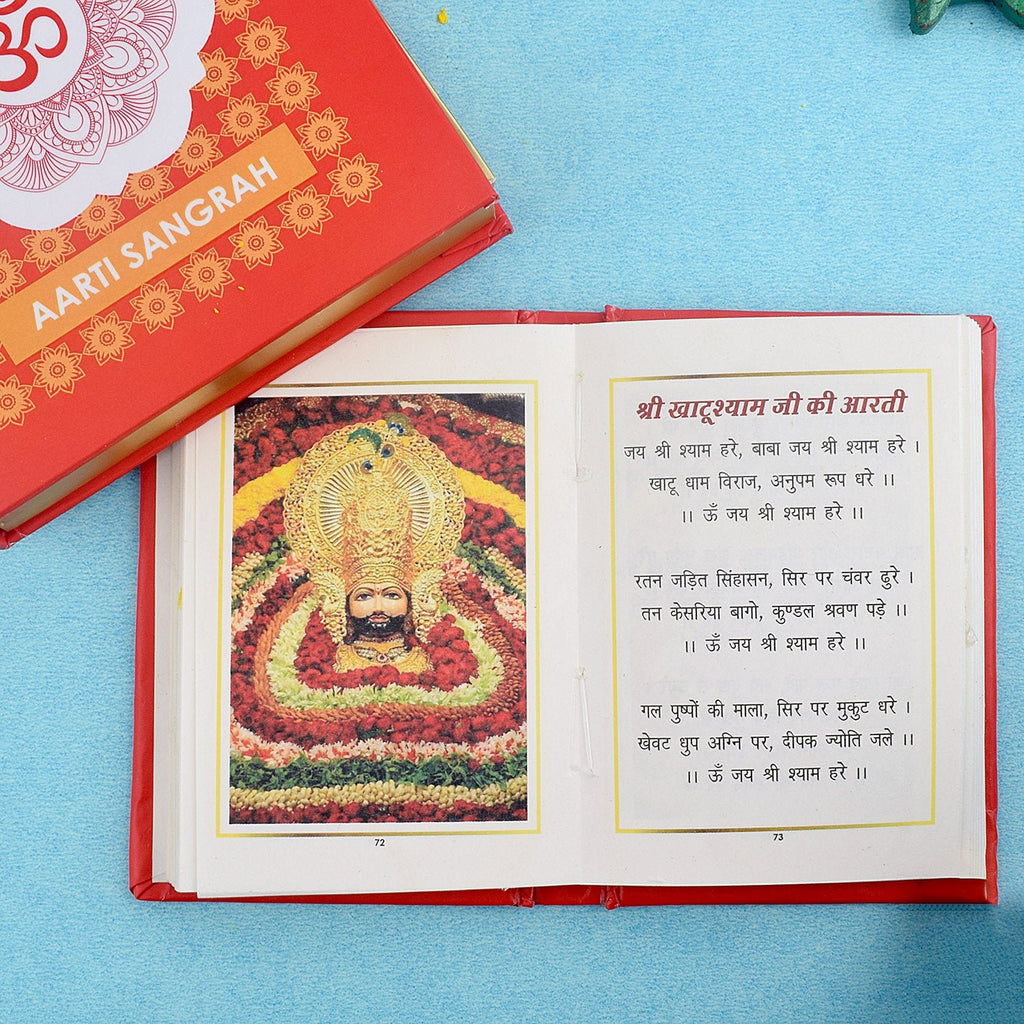 ॐ
AARTI SANGRAH
72
श्री खाटूश्याम जी की आरती
जय श्री श्याम हरे, बाबा जय श्री श्याम हरे ।
खाटू धाम विराज, अनुपम रूप धरे ।।
।। ऊँ जय श्री श्याम हरे ।।
रतन जड़ित सिंहासन, सिर पर चंवर ढुरे ।
तन केसरिया बागो, कुण्डल श्रवण पड़े ।।
।। ऊँ जय श्री श्याम हरे ।।
गल पुष्पों की माला, सिर पर मुकुट धरे ।
खेवट धुप अग्नि पर, दीपक ज्योति जले ।।
।। ऊँ जय श्री श्याम हरे ।।
73